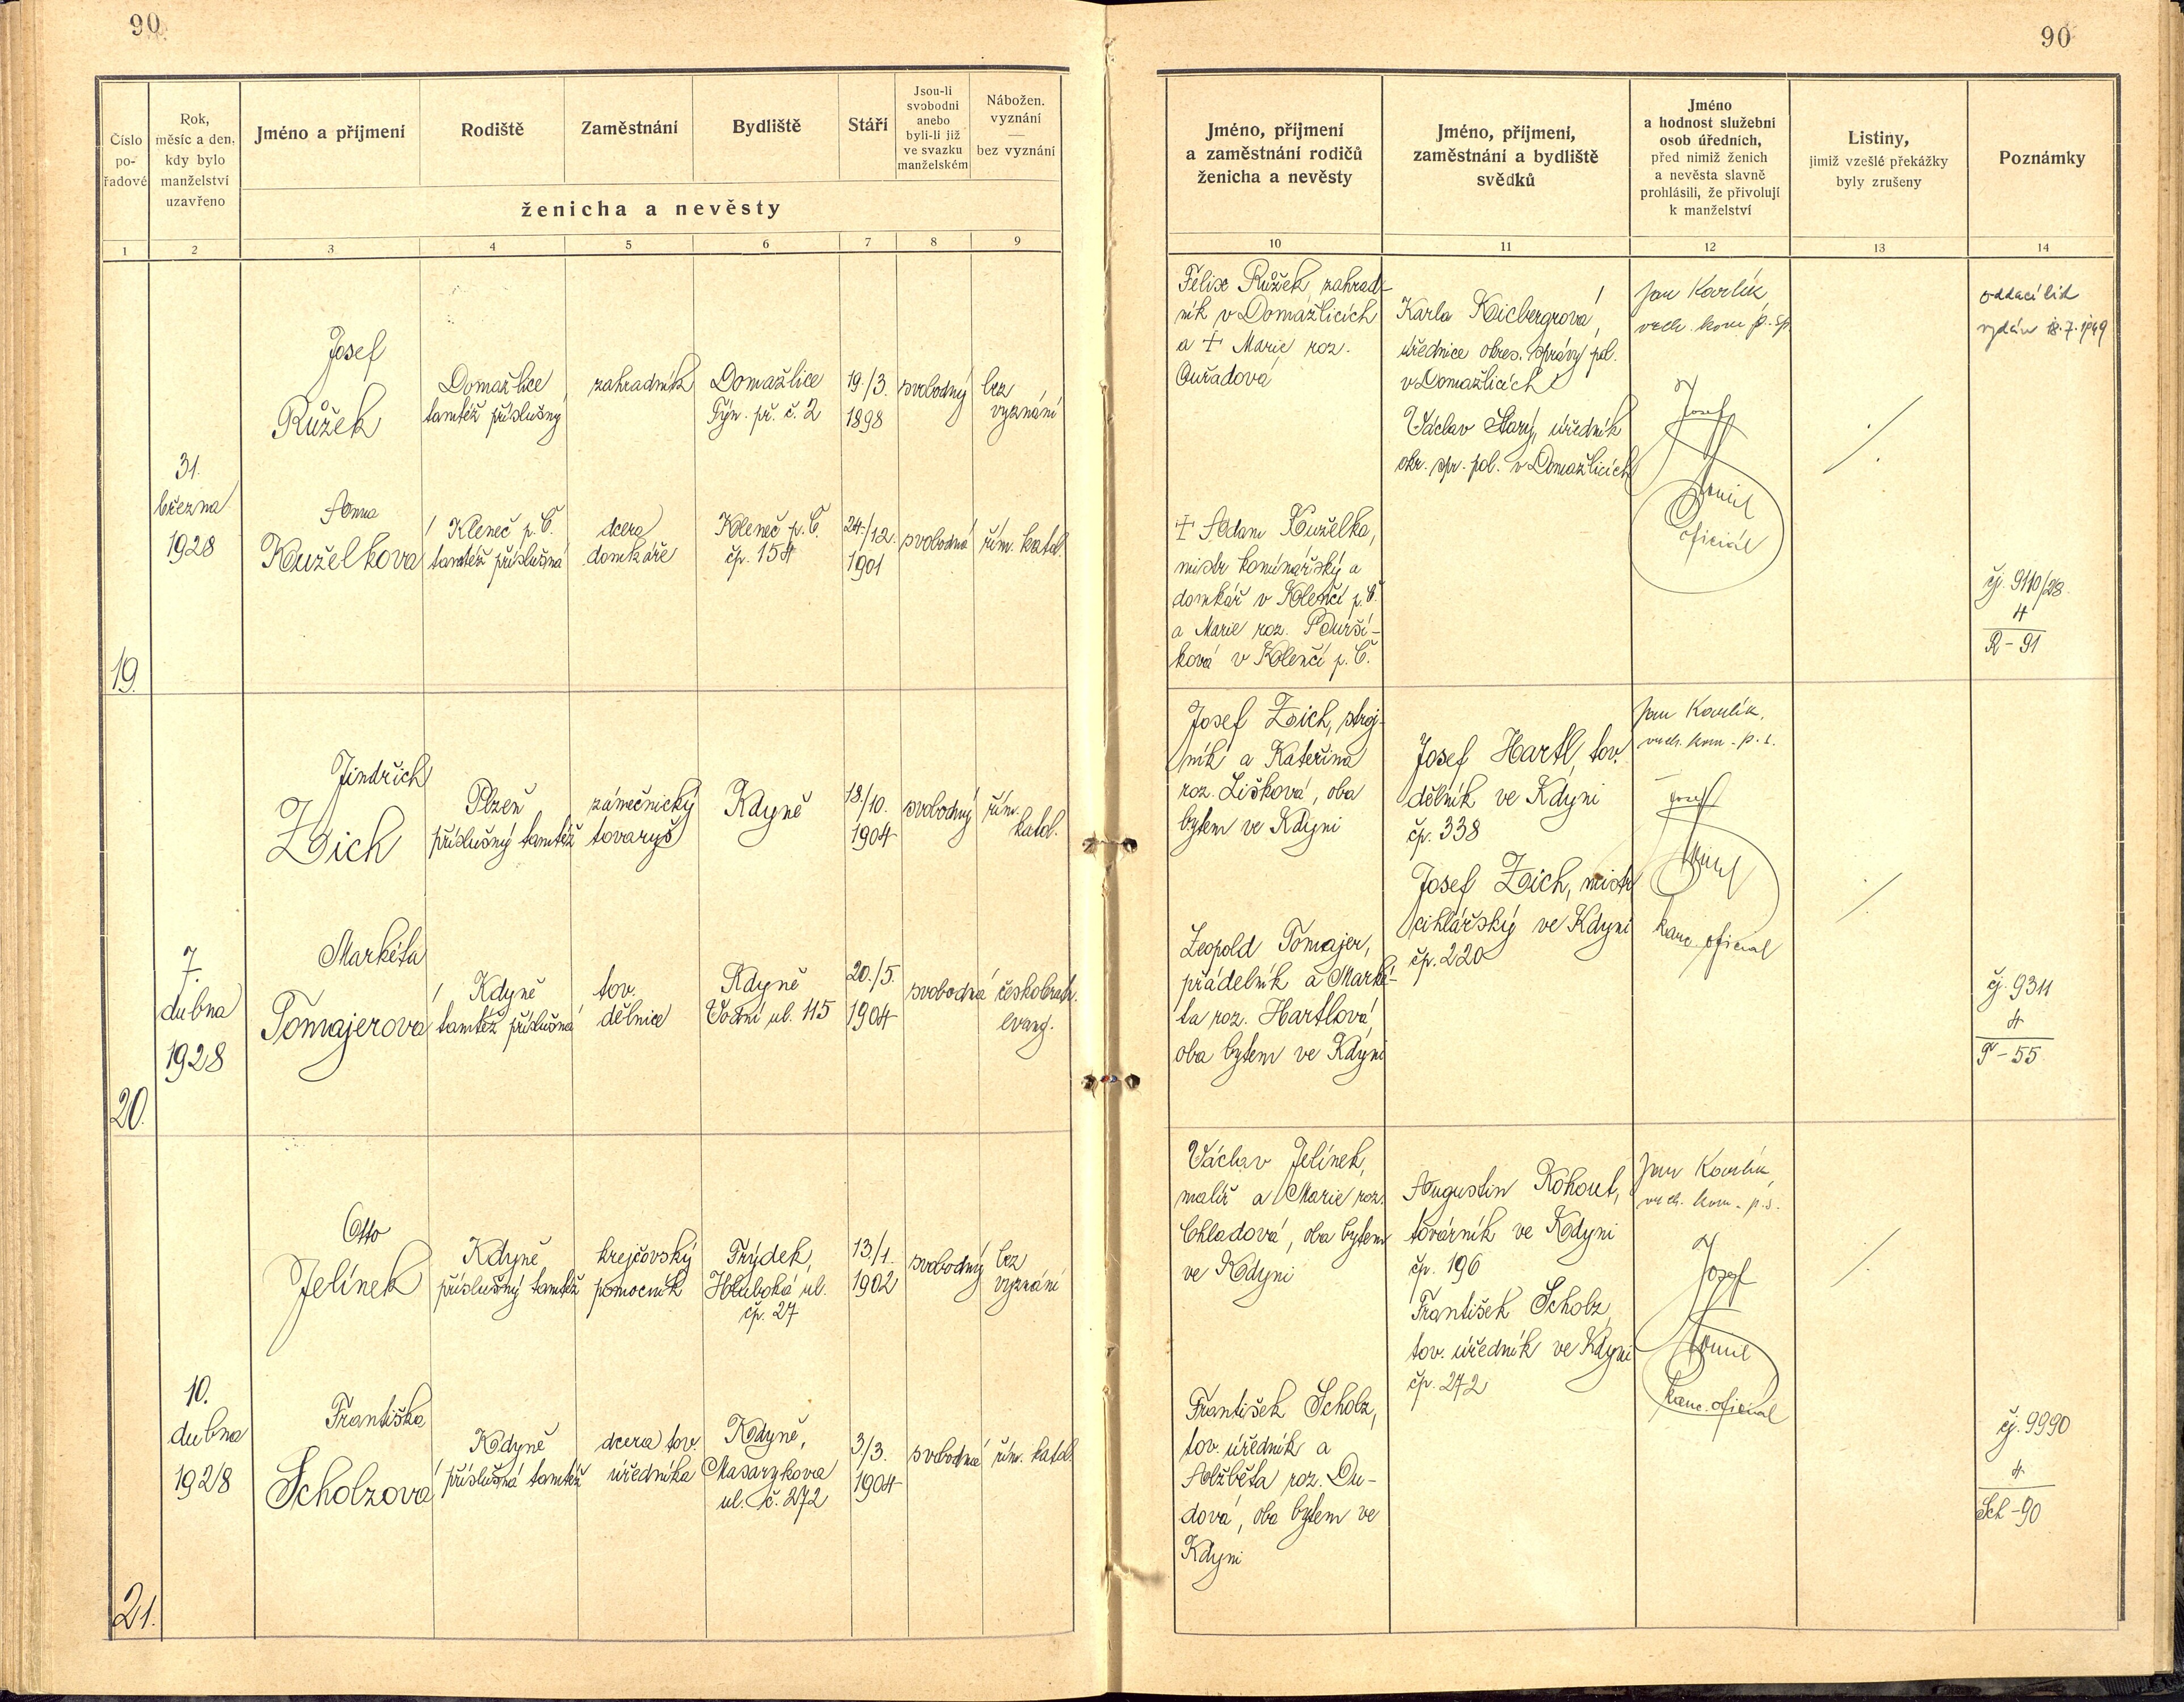 90
90
Číslo
po-
řadové
Rok,
měsíc a den,
kdy bylo
manželství
uzavřeno
Jméno a příjmení
Rodiště
Zaměstnání
Bydliště
Stáří
Jsou-li
svobodni
anebo
byli-li již
ve svazku
manželském
Nábožen.
vyznání
—
bez vyznání
ženicha a nevěsty
Jméno, příjmení
a zaměstnání rodičů
ženicha a nevěsty
Jméno, příjmení,
zaměstnání a bydliště
svědků
Jméno
a hodnost služební
osob úředních,
před nimiž ženich
a nevěsta slavně
prohlásili, že přivolují
k manželství
Listiny,
jimiž vzešlé překážky
byly zrušeny
Poznámky
1 2 3 4 5 6 7 8 9 10 11 12 13 14
19.
31.
března
1928
Josef
Růžek
Domažlice
tamtéž příslušný
zahradník
Domažlice
Týn. př. č. 2
19./3.
1898
svobodný
bez
vyznání
Anna
Kuželkova
Kleneč p. Č.
tamtéž příslušná
dcera
domkáře
Kleneč p. Č.
čp. 154
24./12.
1901
svobodná
řím. katol.
Felix Růžek, zahrad-
ník v Domažlicích
a † Marie roz.
Ouřadová
† Adam Kuželka,
mistr kominářský a
domkář v Klenčí p. Č.
a Marie roz.
ková v Klenčí p. Č.
Karla
úřednice okres. správy pol.
v Domažlicích
Václav Starý, úředník
okr. spr. pol. v Domažlicích
Jan Kavlík,
Josef
oficiál
oddací list
vydán 18.7.1949
čj. 9110/28.
4
R - 91
20.
7.
dubna
1928
Jindřich
Zoich
Plzeň
příslušný tamtéž
zámečnický
tovaryš
Kdyně
18./10.
1904
svobodný
řím.
katol.
Markéta
Tomajerová
Kdyně
tamtéž příslušná
tov.
dělnice
Kdyně
Vodní ul. 115
20./5.
1904
svobodná
českobratr.
evang.
Josef Zoich, stroj-
ník a Kateřina
roz. Lišková, oba
bytem ve Kdyni
Leopold Tomajer,
přádelník a Marké-
ta roz. Hartlová
oba bytem ve Kdyni
Josef Hartl, tov.
dělník ve Kdyni
čp. 338
Josef Zoich, mistr
cihlářský ve Kdyni
čp. 220
Jan Kavlík,
Josef
kanc. oficial
čj. 9311
4
T - 55
21.
10.
dubna
1928
Otto
Jelínek
Kdyně
příslušný tamtéž
krejčovský
pomocník
Frýdek,
Hluboká ul.
čp. 27
13./1.
1902
svobodný
bez
vyznání
Františka
Scholzová
Kdyně
příslušná tamtéž
dcera tov.
úředníka
Kdyně,
Masarykova
ul. č. 272
3./3.
1904
svobodná
řím. katol.
Václav Jelínek,
malíř a Marie roz.
Chladová, oba bytem
ve Kdyni
František Scholz,
tov. úředník a
Alžběta roz. Du-
dová, oba bytem ve
Kdyni
Augustin Kohout,
továrník ve Kdyni
čp. 196
František Scholz,
tov. úředník ve Kdyni
čp. 272
Jan Kavlík,
Josef
kanc. oficial
čj. 9990
4
Sch - 90